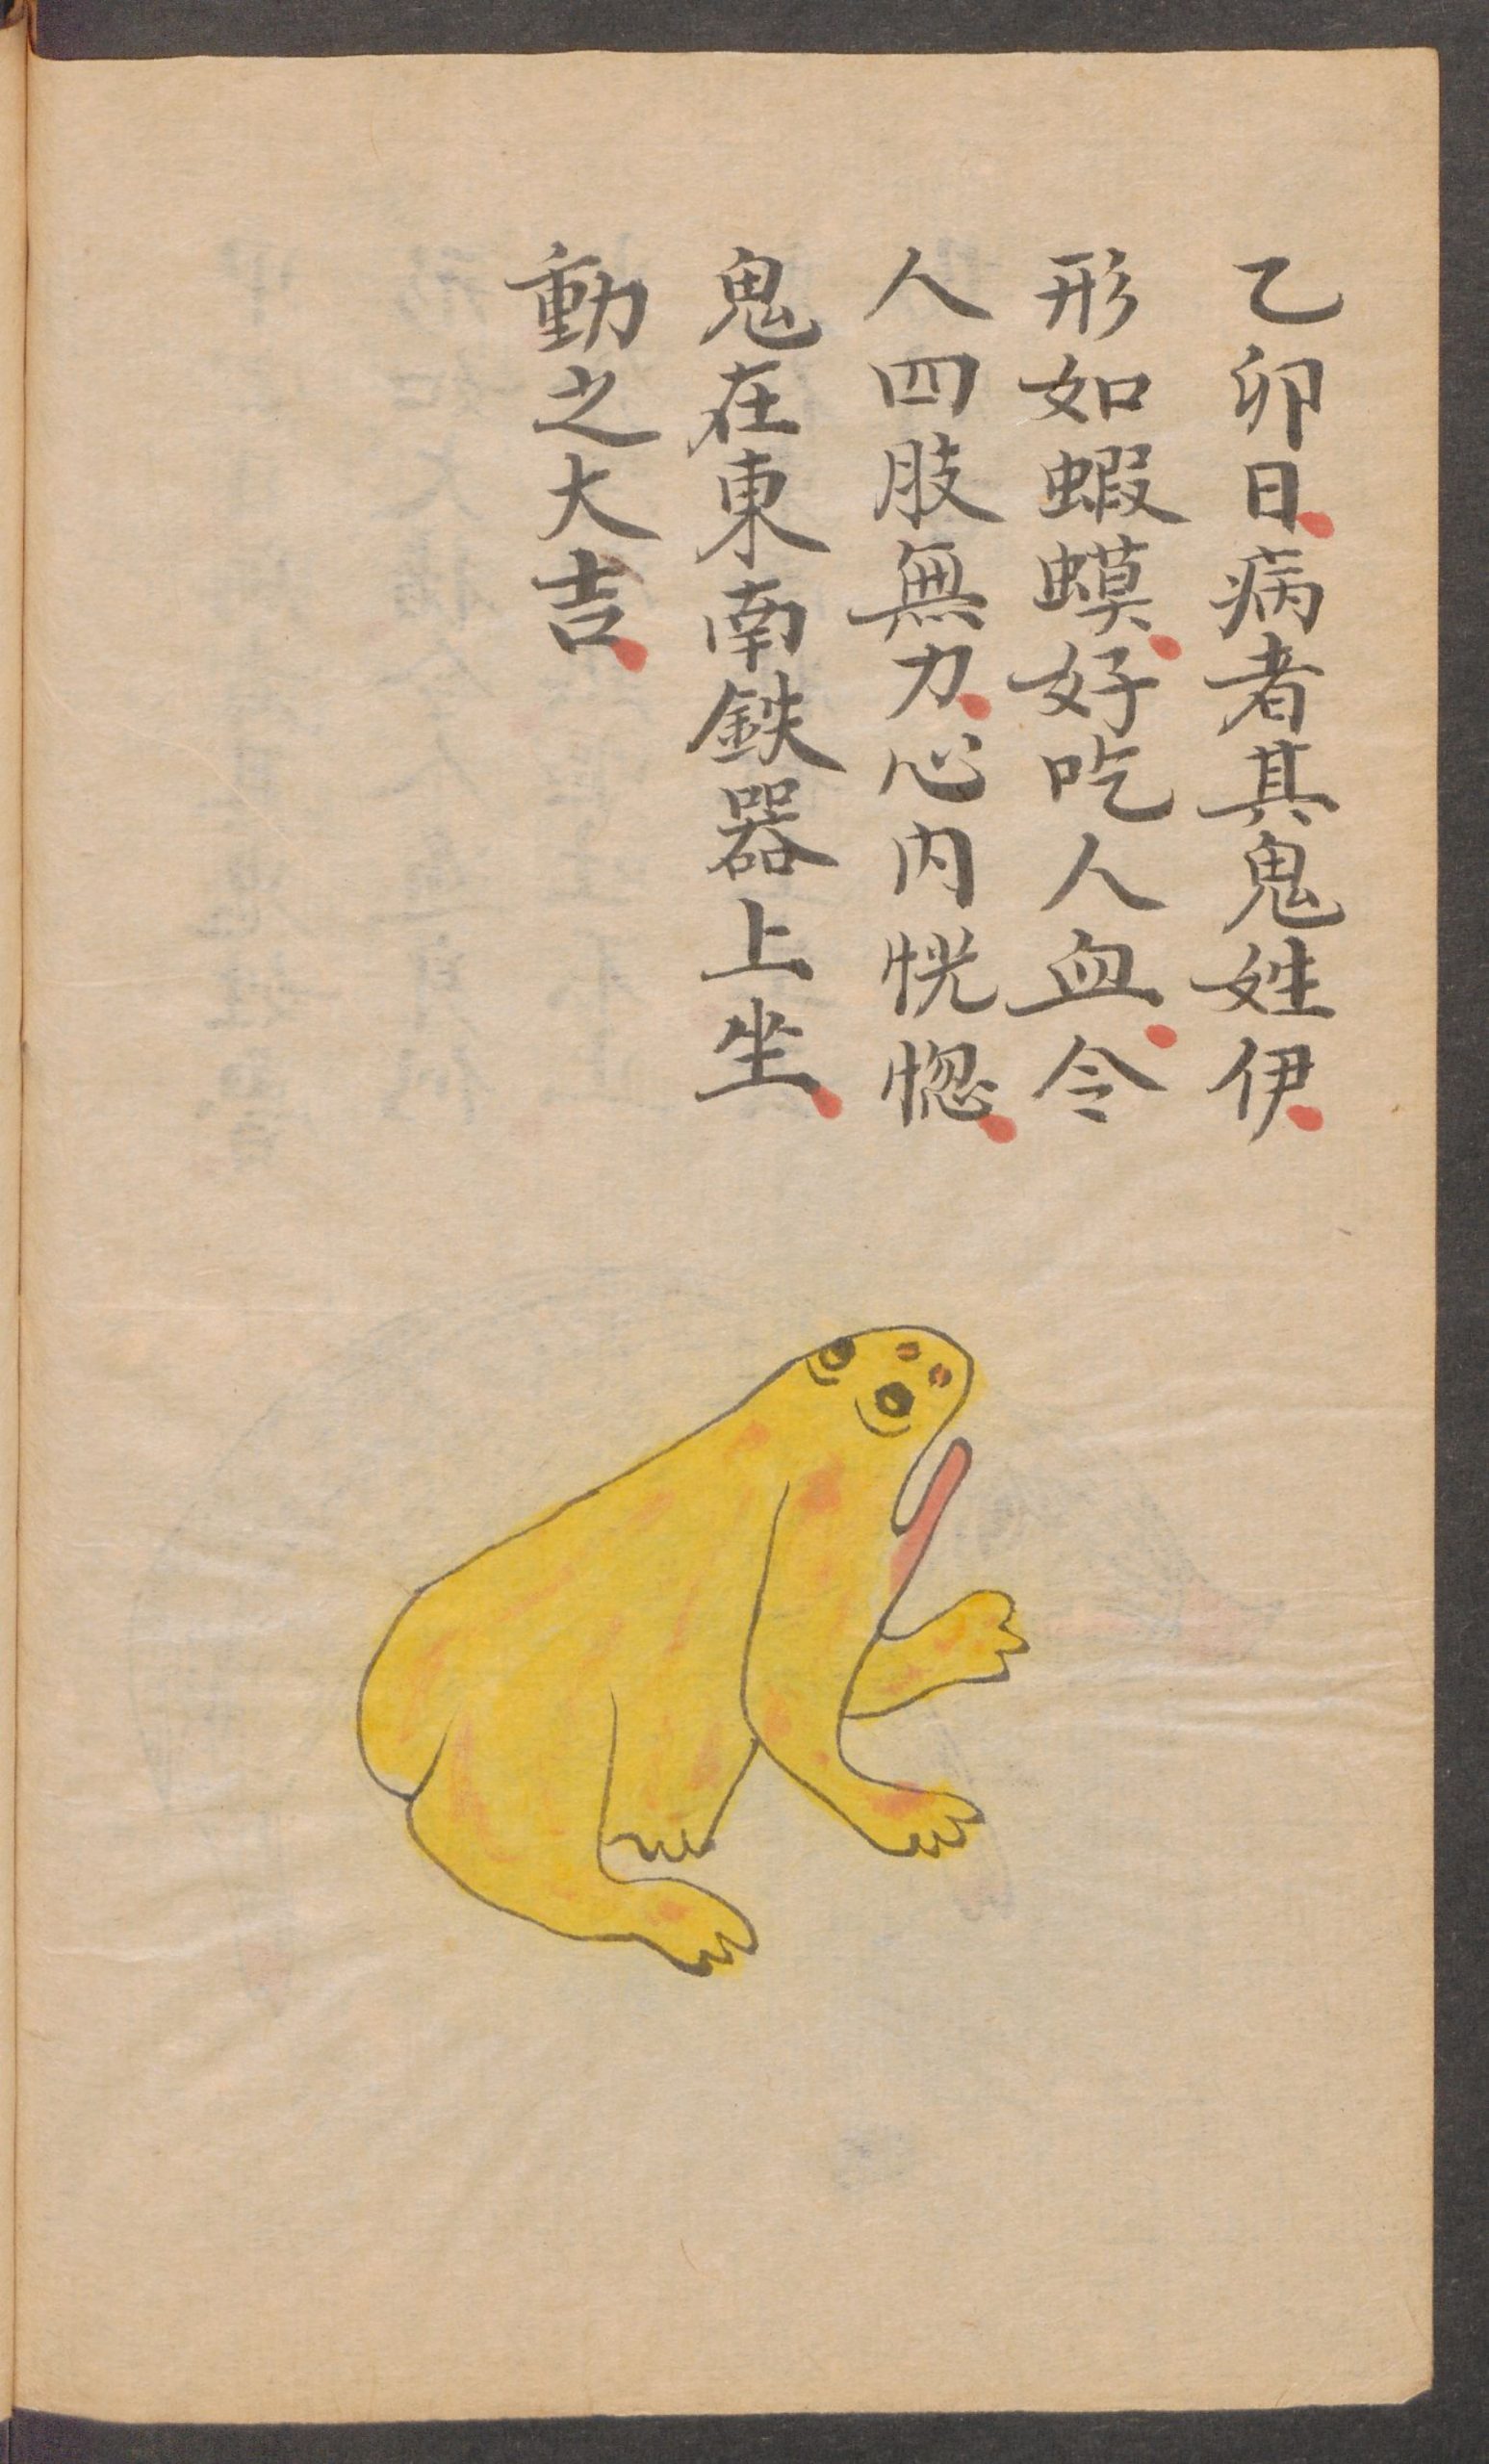 乙卯日病者其鬼姓伊
形如蝦蟆好吃人血令
人四肢無力心内恍惚
鬼在東南鉄器上坐
動之大吉